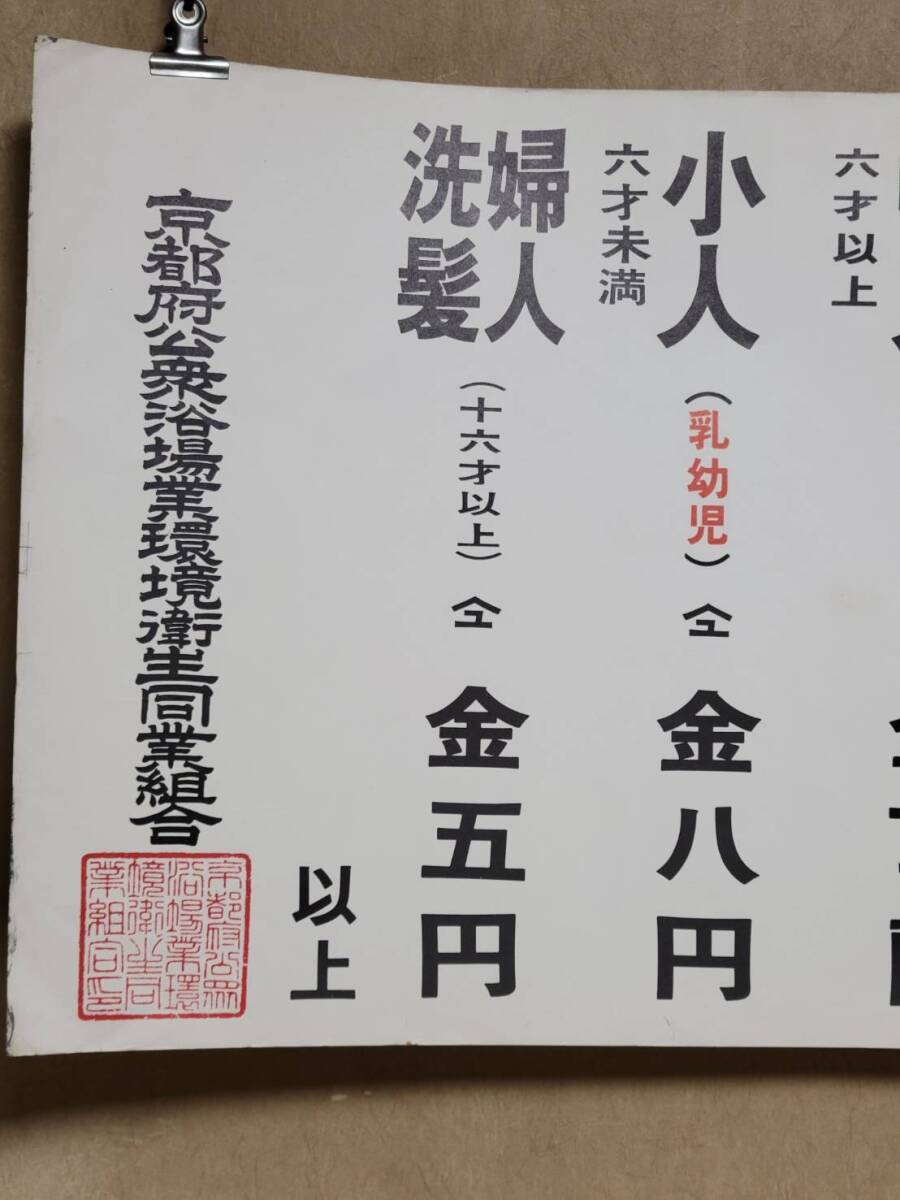 六才以上
小人
六才未満
（乳幼児）仝 金八円
婦人
洗髪
（十六才以上）仝 金五円
以上
京都府公衆浴場業環境衛生同業組合
京都府公衆
浴場業環
境衛生同
業組合印